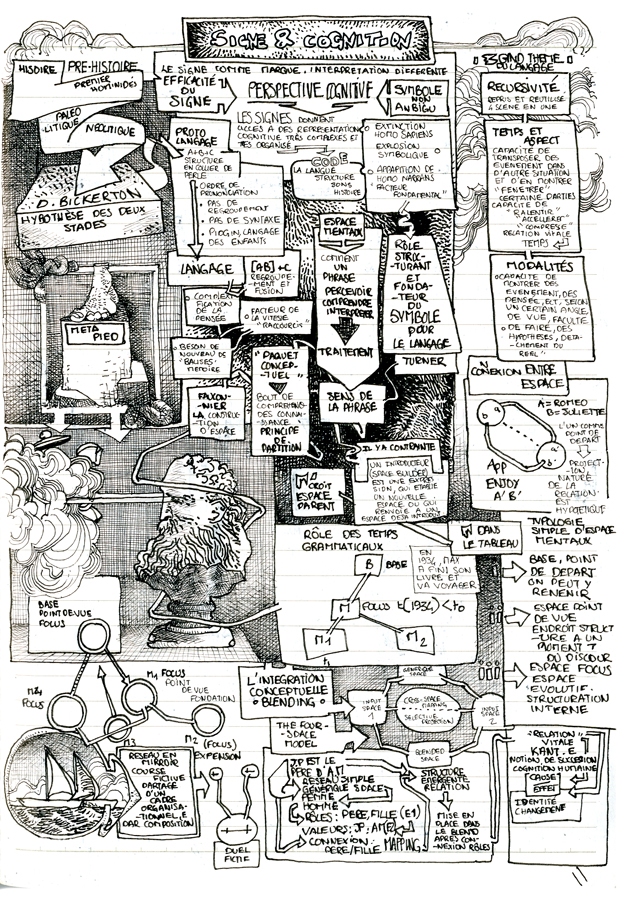 SIGNE & COGNITION
HISTOIRE
PRÉ-HISTOIRE
PREMIER
HOMINIDÉS
PALEO
LITIQUE
NÉOLITIQUE
D. BICKERTON
HYPOTHÈSE DES DEUX
STADES
META
PIED
LE SIGNE COMME MARQUE. INTERPRETATION DIFFERENTE
EFFICACITÉ
DU
SIGNE
PERSPECTIVE COGNITIVE
SYMBOLE
NON
AMBIGU
LES SIGNES DONNENT
ACCES A DES REPRESENTATION
COGNITIVE TRÈS COMPLEXES ET
TRÈS ORGANISÉ
CODE
LA LANGUE
STRUCTURE
SONS
HISTOIRE
EXTINCTION
HOMO SAPIENS
EXPLOSION
SYMBOLIQUE
APPARITION DE
HOMO NARRANS
FACTEUR
FONDAMENTAL"
PROTO
LANGAGE
A+B+C
STRUCTURE
EN COLLIER DE
PERLE
ORDRE DE
PRONONCIATION
PAS DE
REGROUPEMENT
PAS DE SYNTAXE
PIDGIN, LANGAGE
DES ENFANTS
LANGAGE
[AB]+C
REGROUPE-
MENT ET
FUSION
COMPLEXI-
FICATION
DE LA
PENSÉE
FACTEUR DE
LA VITESSE
"RACCOURCIS"
BESOIN DE
NOUVEAU DE
BALISES
MEMOIRE
LA CONSTRUC-
TION D'ESPACE
"PAQUET
CONCEP-
TUEL"
BOUT DE
COMPREHENSION
DES CONNAI-
SSANCE
PRINCIPE
DE
PARTITION
ESPACE
MENTAUX
COMMENT
UN
PHRASE
PERCEVOIR
COMPRENDRE
INTERPRETER
TRAITEMENT
SENS DE
LA PHRASE
RÔLE
STRUC-
TURANT
ET
FONDA-
TEUR
DU
SYMBOLE
POUR
LE LANGAGE
TURNER
IL Y A CONTRAINTE
UN INTRODUCTEUR
(SPACE BUILDER)
EST UNE EXPRES
SION, QUI ETABLIT
UN NOUVELLE
ESPACE OU QUI
RENVOIE A UN
ESPACE DEJA INTRODUIT
DROIT
ESPACE
PARENT
M DANS
LE TABLEAU
3 GRAND THEME
DU LANGAGE
RECURSIVITÉ
REPRIS ET REUTILISÉ
TEMPS ET
ASPECT
CAPACITÉ DE
TRANSPOSER DES
EVENEMENT DANS
D'AUTRE SITUATION
ET D'EN MONTRER
"FENETRER"
CERTAINE PARTIES
CAPACITÉ DE
"RALENTIR"
"ACCELERER"
"COMPRESE"
RELATION VITALE
TEMPS
MODALITÉS
CAPACITÉ DE
MONTRER DES
EVENEMENT, DES
PENSÉES, ECT, SELON
UN CERTAIN ANGLE
DE VUE, FACULTE
DE FAIRE, DES
HYPOTHÈSES, DETA-
CHEMENT DU
REEL"
CONEXION ENTRE
ESPACE
A = ROMEO
B = JULIETTE
L'UN COMME
POINT DE
DEPART
PROJECT-
ION
NATURE
DE LA
RELATION
EST
HYPOTETIQUE
a
b
a'
b'
APP
ENJOY
A' B'
TYPOLOGIE
SIMPLE D'ESPACE
MENTAUX
BASE, POINT
DE DEPART
ON PEUT Y
REVENIR
ESPACE POINT
DE VUE
ENDROIT STRUCT
-URE A UN
MOMENT T
DU DISCOUR
ESPACE FOCUS
ESPACE
"EVOLUTIF"
STRUCTURATION
INTERNE
RÔLE DES TEMPS
GRAMMATICAUX
B
BASE
EN
1934, MAX
A FINI SON
LIVRE ET
VA VOYAGER
M
FOCUS t(1934) < to
M1
M2
BASE
POINT DE VUE
FOCUS
M1 FOCUS
POINT
DE VUE
FONDATION
FOCUS
M2 (FOCUS)
EXPENSION
M3
RESEAU EN
MIRROIR
COURSE
FICTIVE
PARTAGE
D'UN
CADRE
ORGANISA-
TIONNEL, E
PAR COMPOSITION
DUEL
FICTIF
L'INTEGRATION
CONCEPTUELLE
"BLENDING"
THE FOUR-
SPACE
MODEL
GENERIQUE
SPACE
INPUT
SPACE
1
CROSS-SPACE
MAPPING
SELECTIVE
PROJECTION
INPUT
SPACE
2
BLENDED
SPACE
JP EST LE
PÈRE D'A.M
RESEAU SIMPLE
GENERIQUE SPACE
FEMME
HOMME
RÔLES: PERE, FILLE (E1)
VALEURS: JP: AM (E2)
CONNEXION:
PERE/FILLE MAPPING
STRUCTURE
EMERGENTE
RELATION
MISE EN
PLACE DANS
LE BLEND
APRES CON-
NEXION RÔLES
"RELATION"
VITALE
KANT. E
NOTION, DE SUCCESSION
COGNITION HUMAINE
CAUSE
EFFET
IDENTITÉ
CHANGEMENT
11